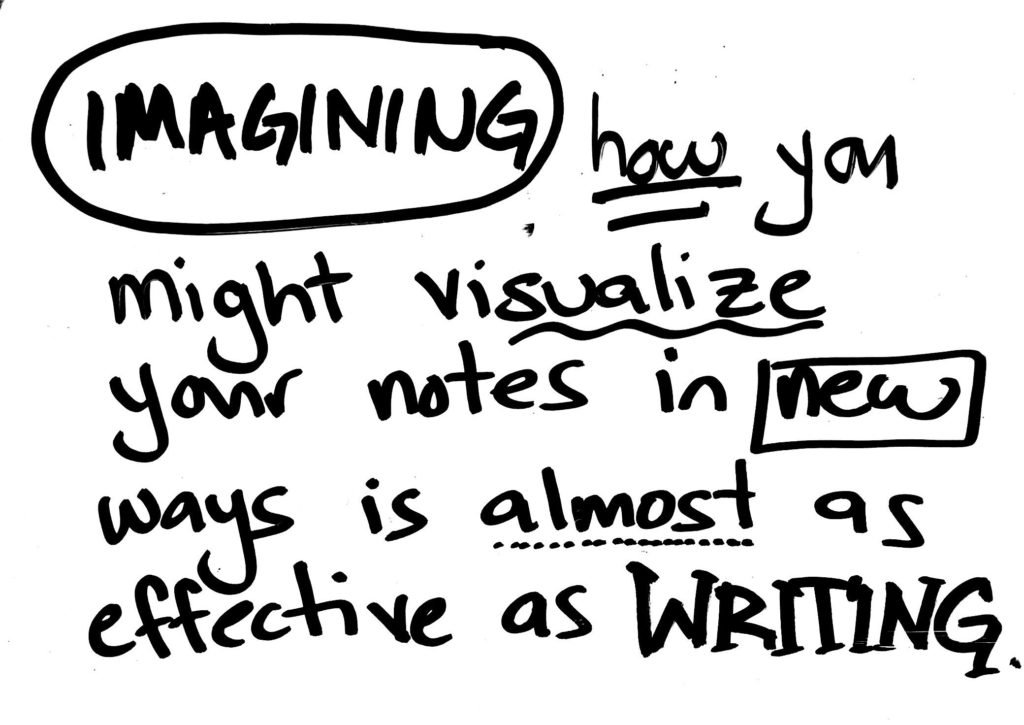 IMAGINING how you
might visualize
your notes in new
ways is almost as
effective as WRITING.